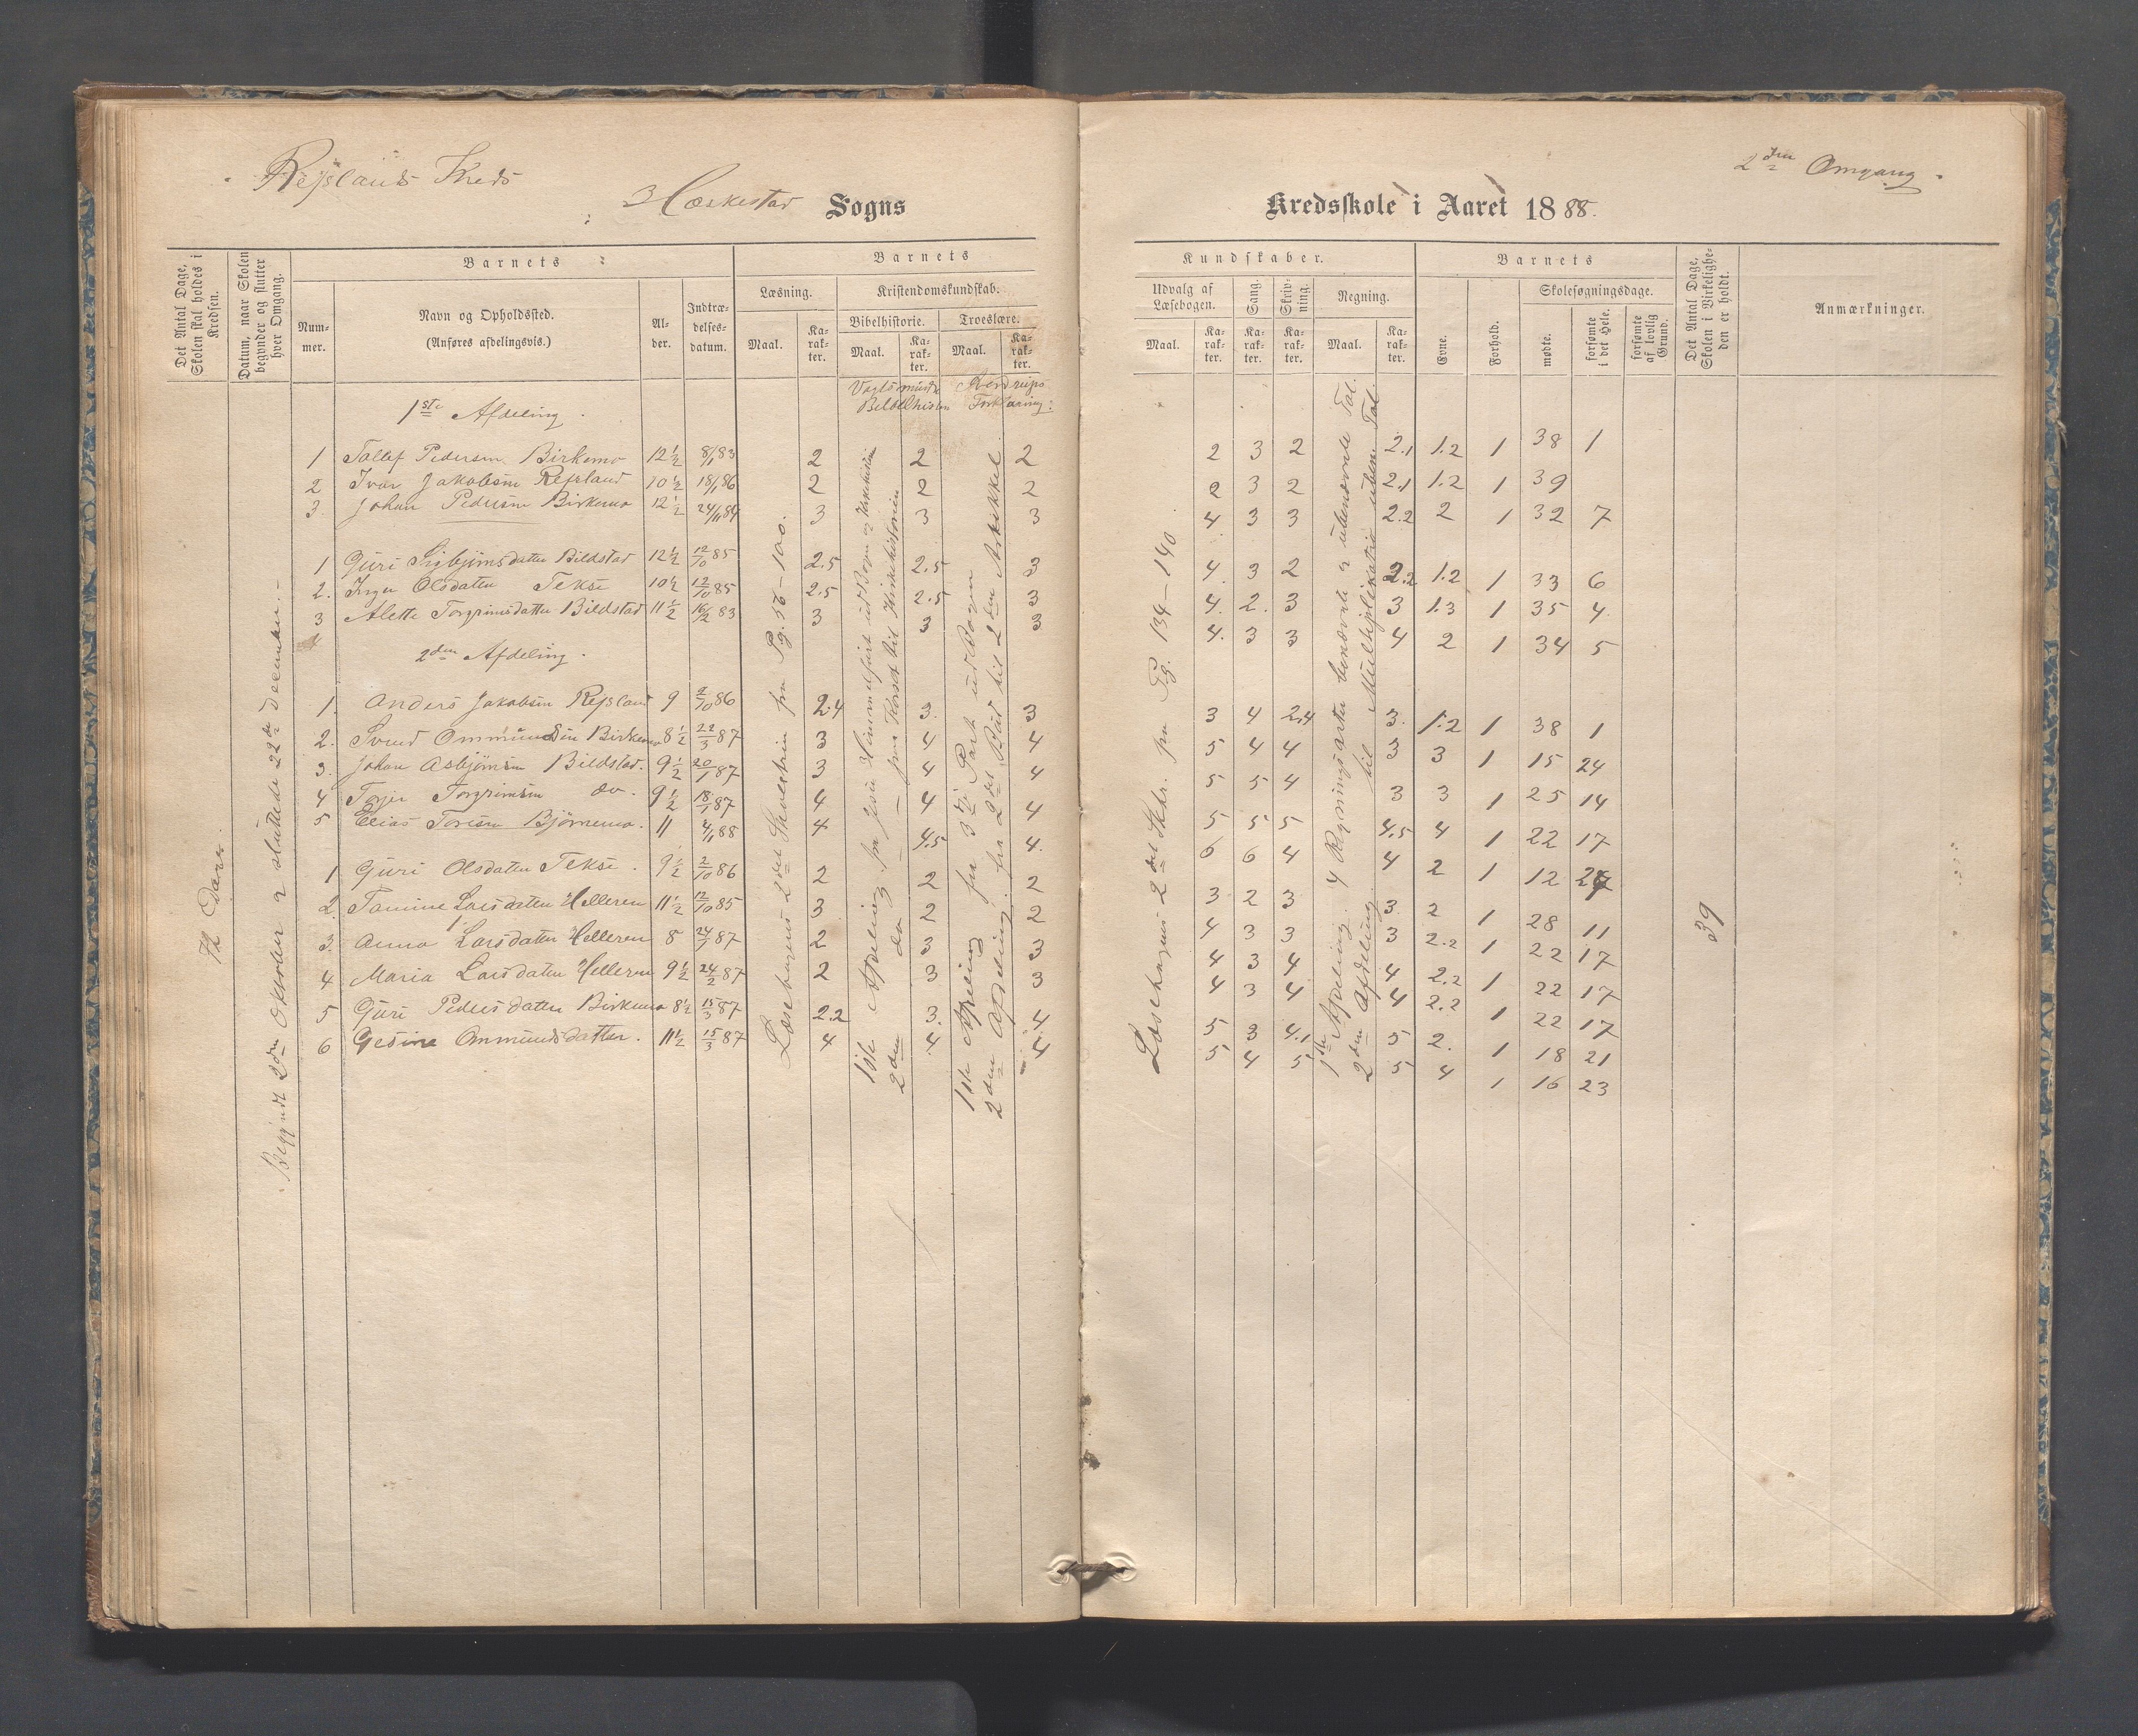 Rejslands Kreds
Hæskestad Sogns
Kredsskole i Aaret 1888.
2den Omgang.
Det Antal Dage, Skolen skal holdes i Kredsen.
Datum, naar Skolen begynder og slutter hver Omgang.
Barnets
Nummer.
Navn og Opholdssted.
(Anføres afdelingsvis.)
Alder.
Indtrædelsesdatum.
Barnets
Læsning.
Maal.
Karakter.
Kristendomskundskab.
Bibelhistorie.
Maal.
Karakter.
Troeslære.
Maal.
Karakter.
Kundskaber.
Udvalg af Læsebogen.
Maal.
Karakter.
Sang.
Karakter.
Skrivning.
Karakter.
Regning.
Maal.
Karakter.
Barnets
Evne.
Forhold.
Skolesøgningsdage.
mødte.
forsømte i det Hele.
forsømte af lovlig Grund.
Det Antal Dage, Skolen i Virkeligheden er holdt.
Anmærkninger.
Bibelhistorie
Forklaring.
Dage.
Begyndt 2den Oktober & sluttede 22de December.
Læsebogens 2det Skoletrin fra Pg. 56 - 100.
1ste Afdeling fra Jesu Himmelfart ud Bogen og Kirkehistorien
2den do
1ste Afdeling fra 3die Part ud Bogen
2den Afdeling fra 2det Bud til 2den Artikkel
Læsebogens 2det Skr. fra Pg. 134 - 140.
1ste Afdeling. 4 Regningsarter benævnte & ubenævnte Tal.
2den Afdeling til Multiplikation uben. Tal.
39
1ste Afdeling.
1 Tollef Pedersen Birkemo 12½ 8/1 83 2 2 2 2 3 2 2.1 1.2 1 38 1
2 Ivar Jakobsen Rejsland 10½ 18/1 86 2 2 2 2 3 2 2.1 1.2 1 39
3. Johan Pedersen Birkemo 12½ 24/11 84 3 3 3 4 3 3 2.2 2 1 32 7
1 Guri Sigbjørnsdatter Bildstad 12½ 12/10 85 2.5 2.5 3 4 3 2 2.2 1.2 1 33 6
2. Inger Olsdatter Tekse 10½ 12/10 85 2.5 2.5 3 4. 2. 3 3 1.3 1 35 4
3 Alette Torgrimsdatter Bildstad 11½ 16/2 83 3 3 3 4. 3 3 4 2 1 34 5
2den Afdeling.
1. Anders Jakobsen Rejsland 9 2/10 86 2.4 3. 3 3 4 2.4 3. 1.2 1 38 1
2. Svend Ommundsen Birkemo 8½ 22/3 87 3 4 4 5 4 4 3 3 1 15 24
3. Johan Asbjørnsen Bildstad. 9½ 20/1 87 3 4 4 5 5 4 3 3 1 25 14
4 Torjer Torgrimsen do. 9½ 18/1 87 4 4 4 5 5 5 4.5 4 1 22 17
5 Elias Toresen Bjørnemo. 11 4/11 88 4 4.5 4. 6 6 4 4 2 1 12 27
1 Guri Olsdatter Tekse. 9½ 2/10 86 2 2 2 3 2 3 3 2 1 28 11
2. Tomine Larsdatter Helleren 11½ 12/10 85 3 2 2 4 3 3 3 2.2 1 22 17
3. Anna Larsdatter Helleren 8 24/1 87 2 3 3 4 3 4 4 2.2 1 22 17
4 Maria Larsdatter Helleren 9½ 24/2 87 2 3 3 4 3 4 4 2.2 1 22 17
5 Guri Pedersdatter Birkemo 8½ 15/3 87 2.2 3. 4 5 3 4.1 5 2. 1 18 21
6 Gesine Ommundsdatter. 11½ 15/3 87 4 4. 4 5 4 5 5 4 1 16 23